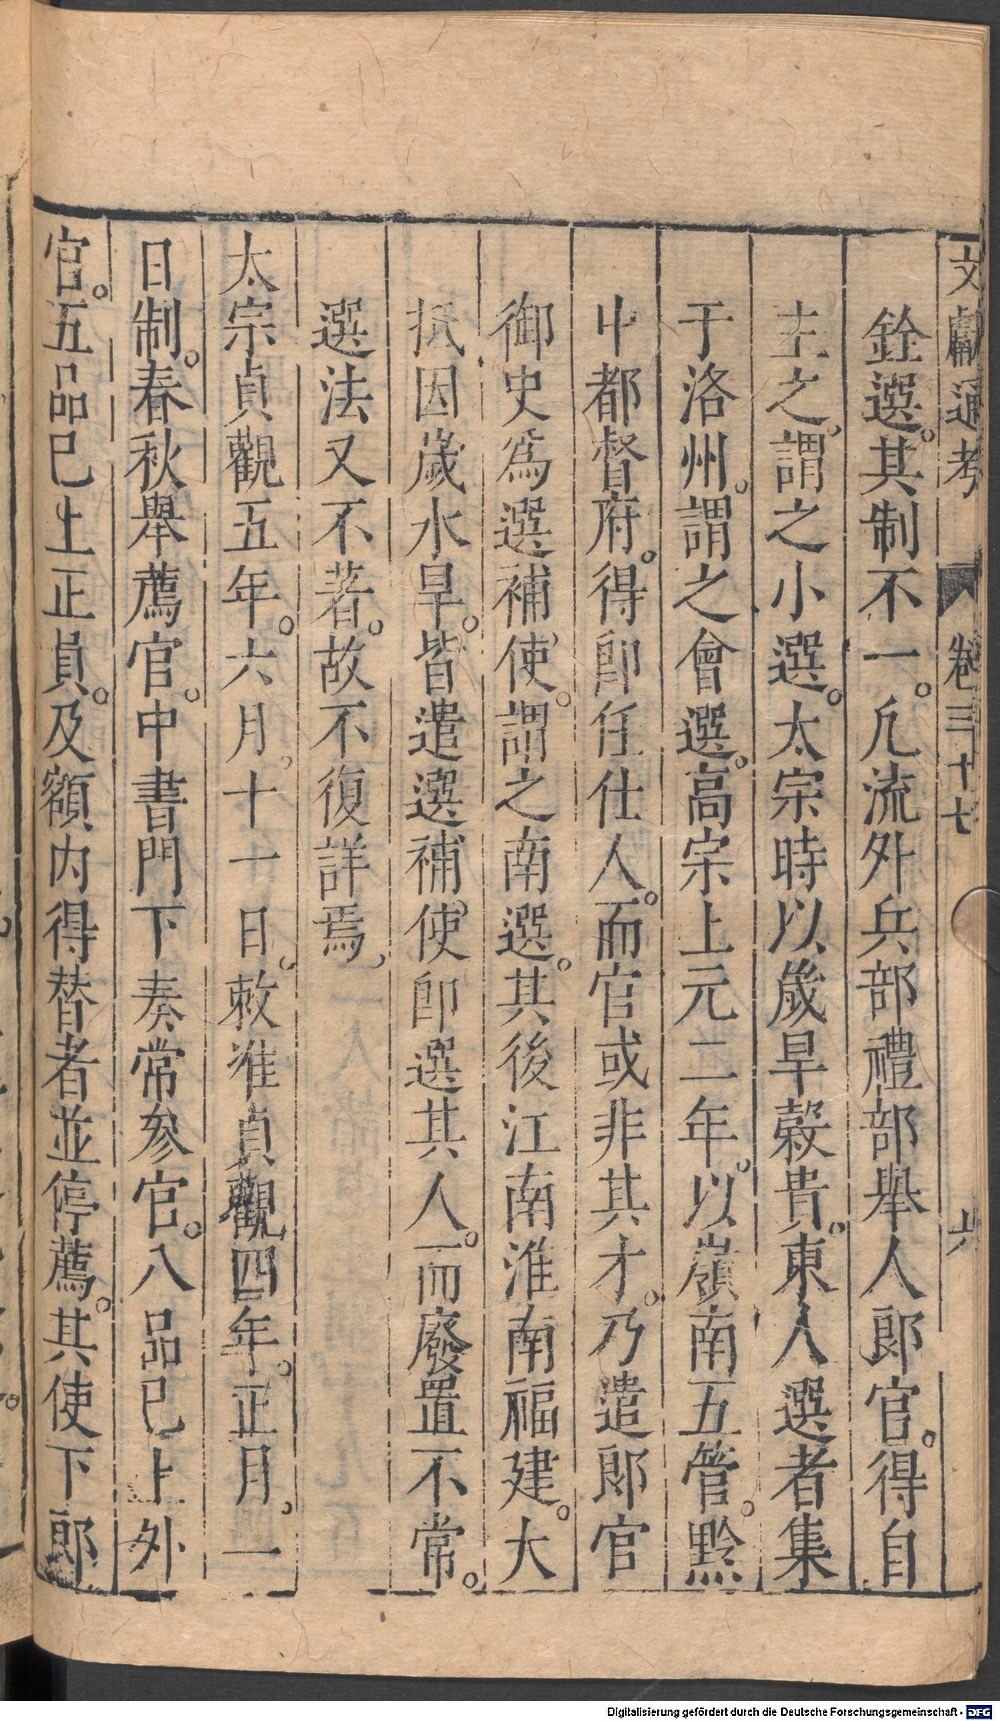 文獻通考 卷三十七 六
銓選。其制不一。凡流外兵部禮部舉人郎官。得自
主之。謂之小選。太宗時以歲旱穀貴。東人選者集
于洛州。謂之會選。高宗上元二年。以嶺南五管。黔
中都督府。得卽任仕人。而官或非其才。乃遣郎官
御史爲選補使。謂之南選。其後江南淮南福建。大
抵因歲水旱。皆遣選補使卽選其人。而廢置不常。
選法又不著。故不復詳焉、
太宗貞觀五年。六月、十一日。敕准貞觀四年。正月、一
日制。春秋舉薦官。中書門下奏常參官。八品已上外
官。五品已上正員。及額內得替者並停薦。其使下郎
Digitalisierung gefördert durch die Deutsche Forschungsgemeinschaft - DFG